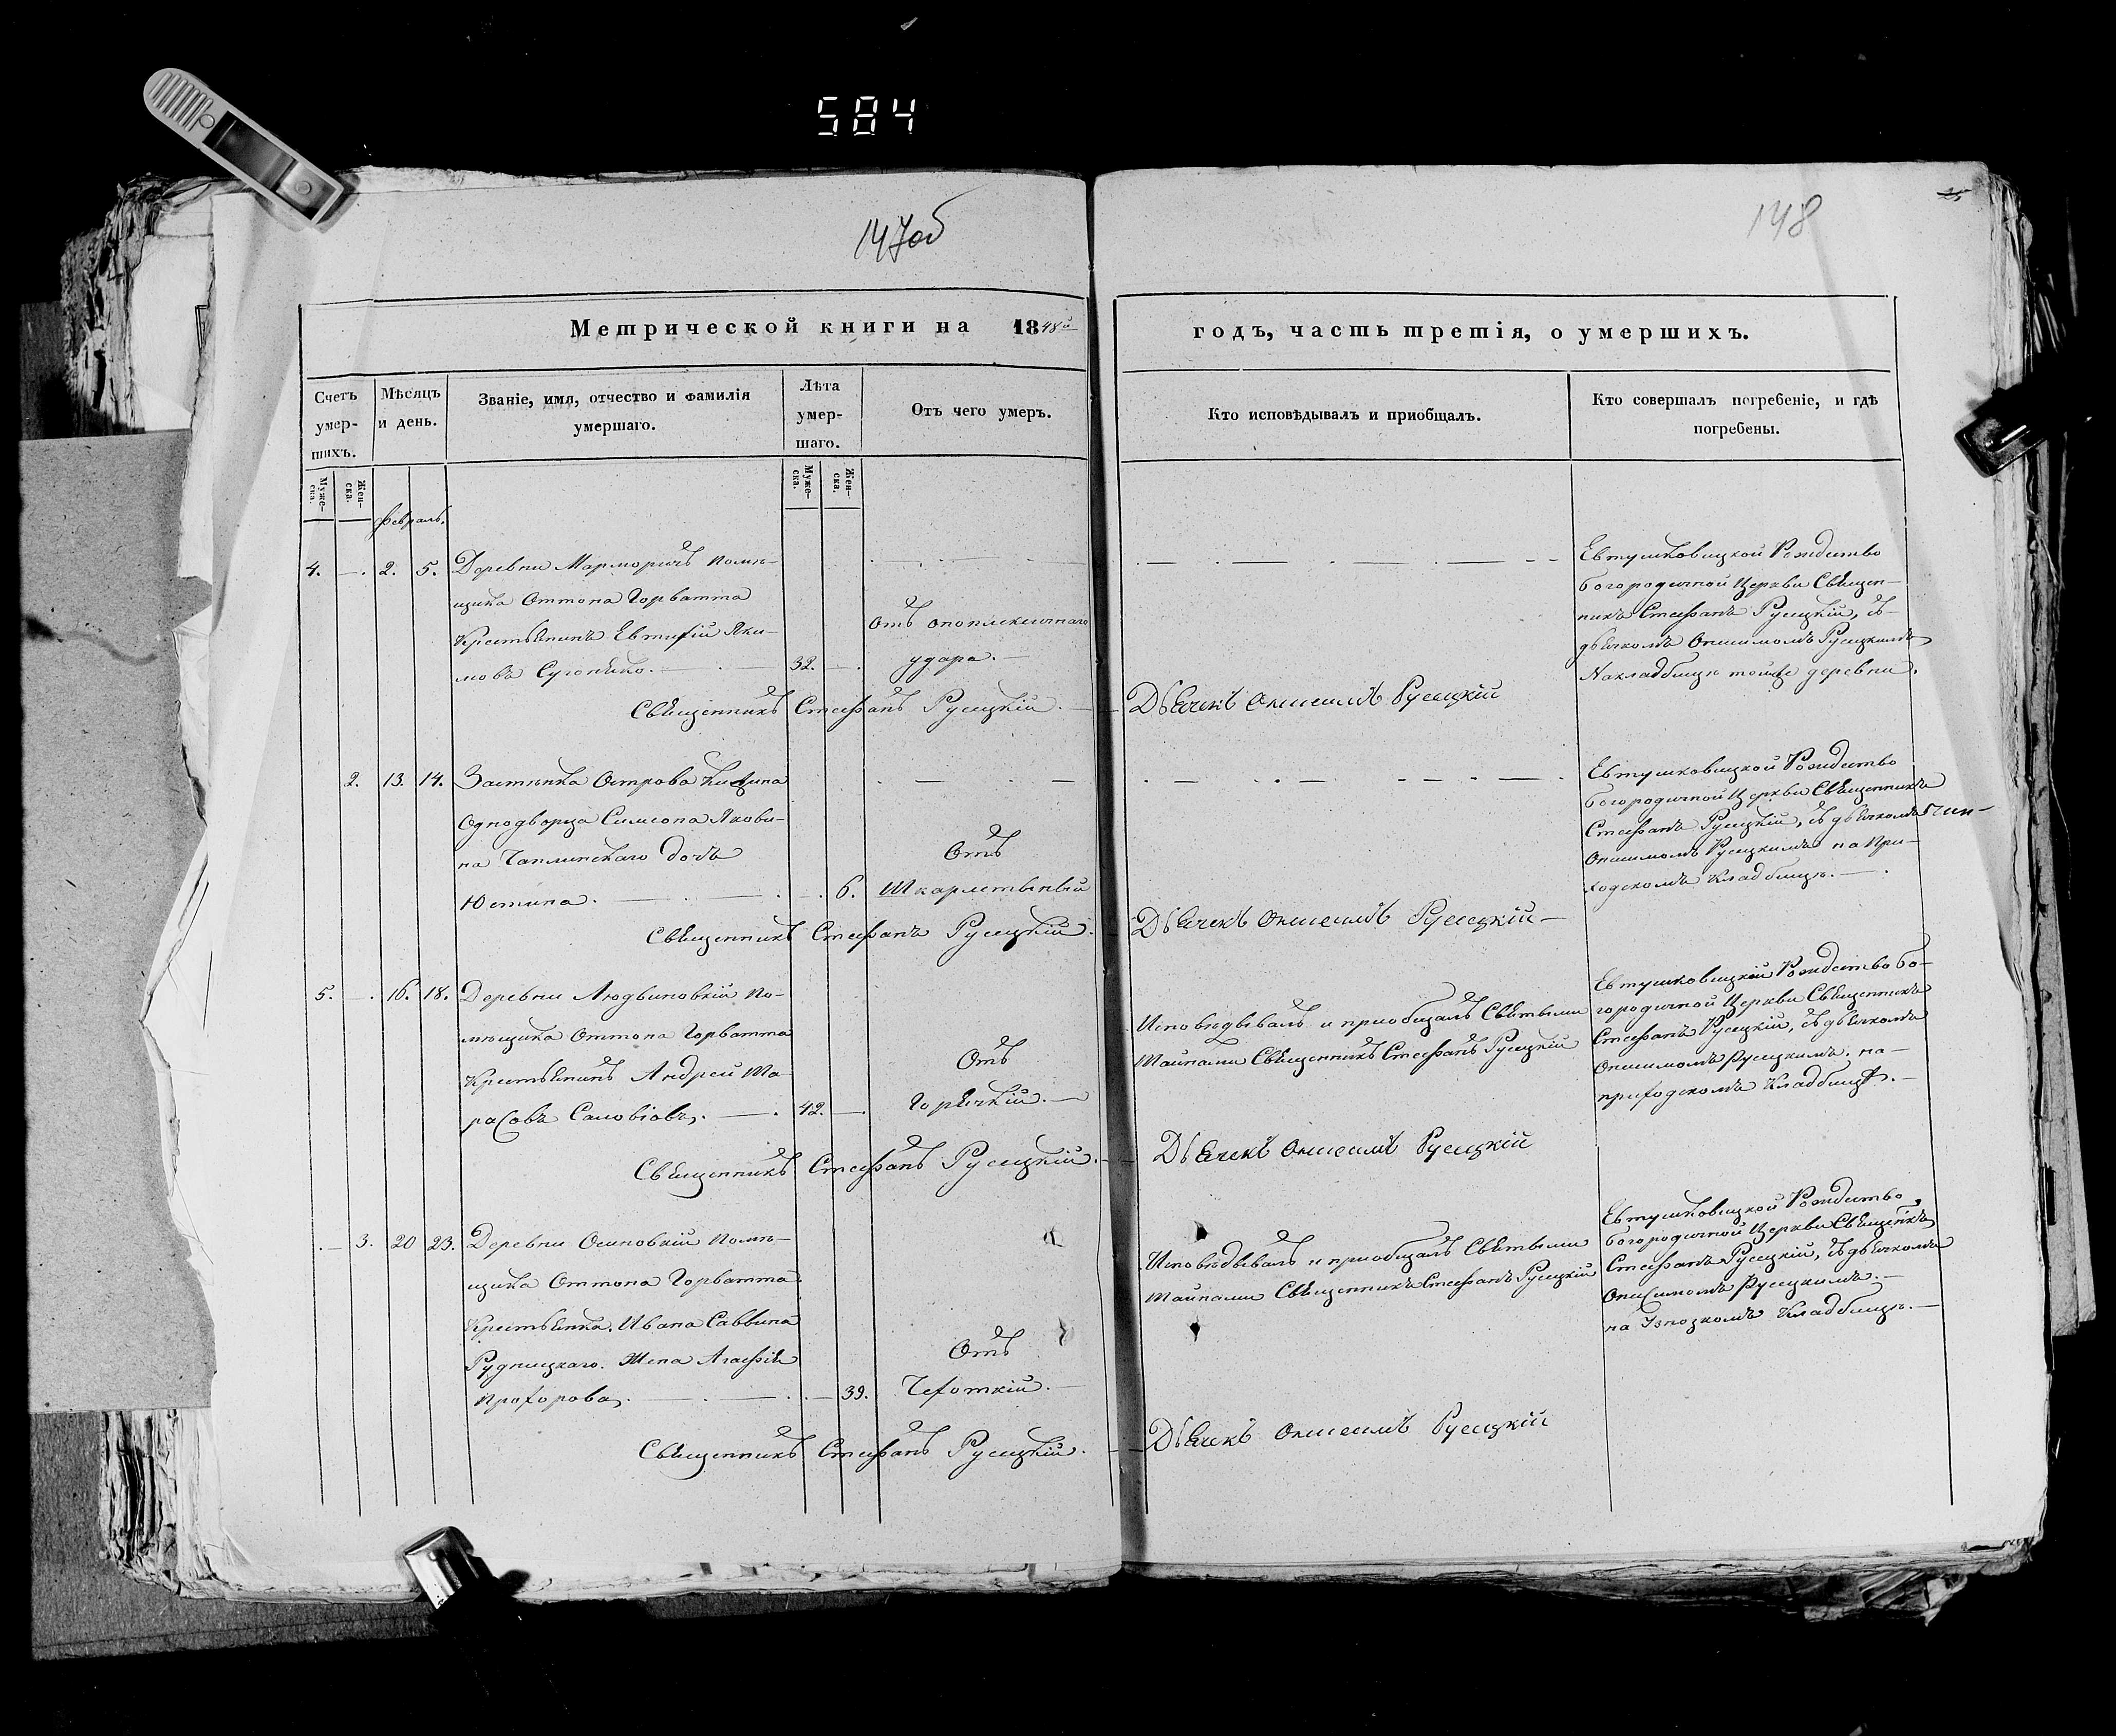 584
147об
148
Метрической книги на 1848й
годъ, часть третія, о умершихъ.
Счетъ умер-
шихъ.
Мѣсяцъ
и день.
Званіе, имя, отчество и фамилія
умершаго.
Лѣта
умер-
шаго.
Отъ чего умеръ.
Кто исповѣдывалъ и приобщалъ.
Кто совершалъ погребеніе, и гдѣ
погребены.
Муже-
ска.
Жен-
ска.
Муже-
ска.
Жен-
ска.
Февраль.
4. — 2. 5. Деревни Марморичъ помѣ-
щика Оттона Горватта
Крестьянинъ Евтифій Яки-
мовъ 32. —
Отъ апоплексичнаго
удара. —
Евтушковицкой Рождество
богородичной Церкви Священ-
никъ Стефанъ Русецкій, съ
дьячкомъ Онисимомъ Русецкимъ
На кладбищѣ тойже деревни.
Священникъ Стефанъ Русецкій. —
Дьячекъ Онисимъ Русецкій
2. 13. 14. Застѣнка Острова
Однодворца Симеона Якови-
на Чаплинскаго дочь
Юстина. — 6.
Отъ
Шкарлетыны
Евтушковицкой Рождество
богородичной Церкви Священникъ
Стефанъ Русецкій, съ дьячкомъ
Онисимомъ Русецкимъ на При-
ходскомъ Кладбищѣ. —
Священникъ Стефанъ Русецкій.
Дьячекъ Онисимъ Русецкій —
5. — 16. 18. Деревни Людвиновкій По-
мѣщика Оттона Горватта
Крестьянинъ Андрей Та-
расовъ 42. —
Отъ
Горячкій. —
Исповѣдывалъ и приобщалъ Святыми
Тайнами Священникъ Стефанъ Русецкій
Евтушковицкой Рождество бо-
городичной Церкви Священникъ
Стефанъ Русецкій, съ дьячкомъ
Онисимомъ Русецкимъ, на
приходскомъ Кладбищѣ. —
Священникъ Стефанъ Русецкій. —
Дьячекъ Онисимъ Русецкій
— 3. 20 23. Деревни Осиповкій Помѣ-
щика Оттона Горватта
Крестьянка. Ивана Саввина
Рудницкаго. Жена Агафія
Прохорова. — 39.
Отъ
Чехоткій. —
Исповѣдывалъ и приобщалъ Святыми
Тайнами Священникъ Стефанъ Русецкій
Евтушковицкой Рождество
богородичной Церкви Священикъ
Стефанъ Русецкій, съ дьячкомъ
Онисимомъ Русецкимъ. —
на Кладбищѣ. —
Священникъ Стефанъ Русецкій.
— Дьячекъ Онисимъ Русецкій